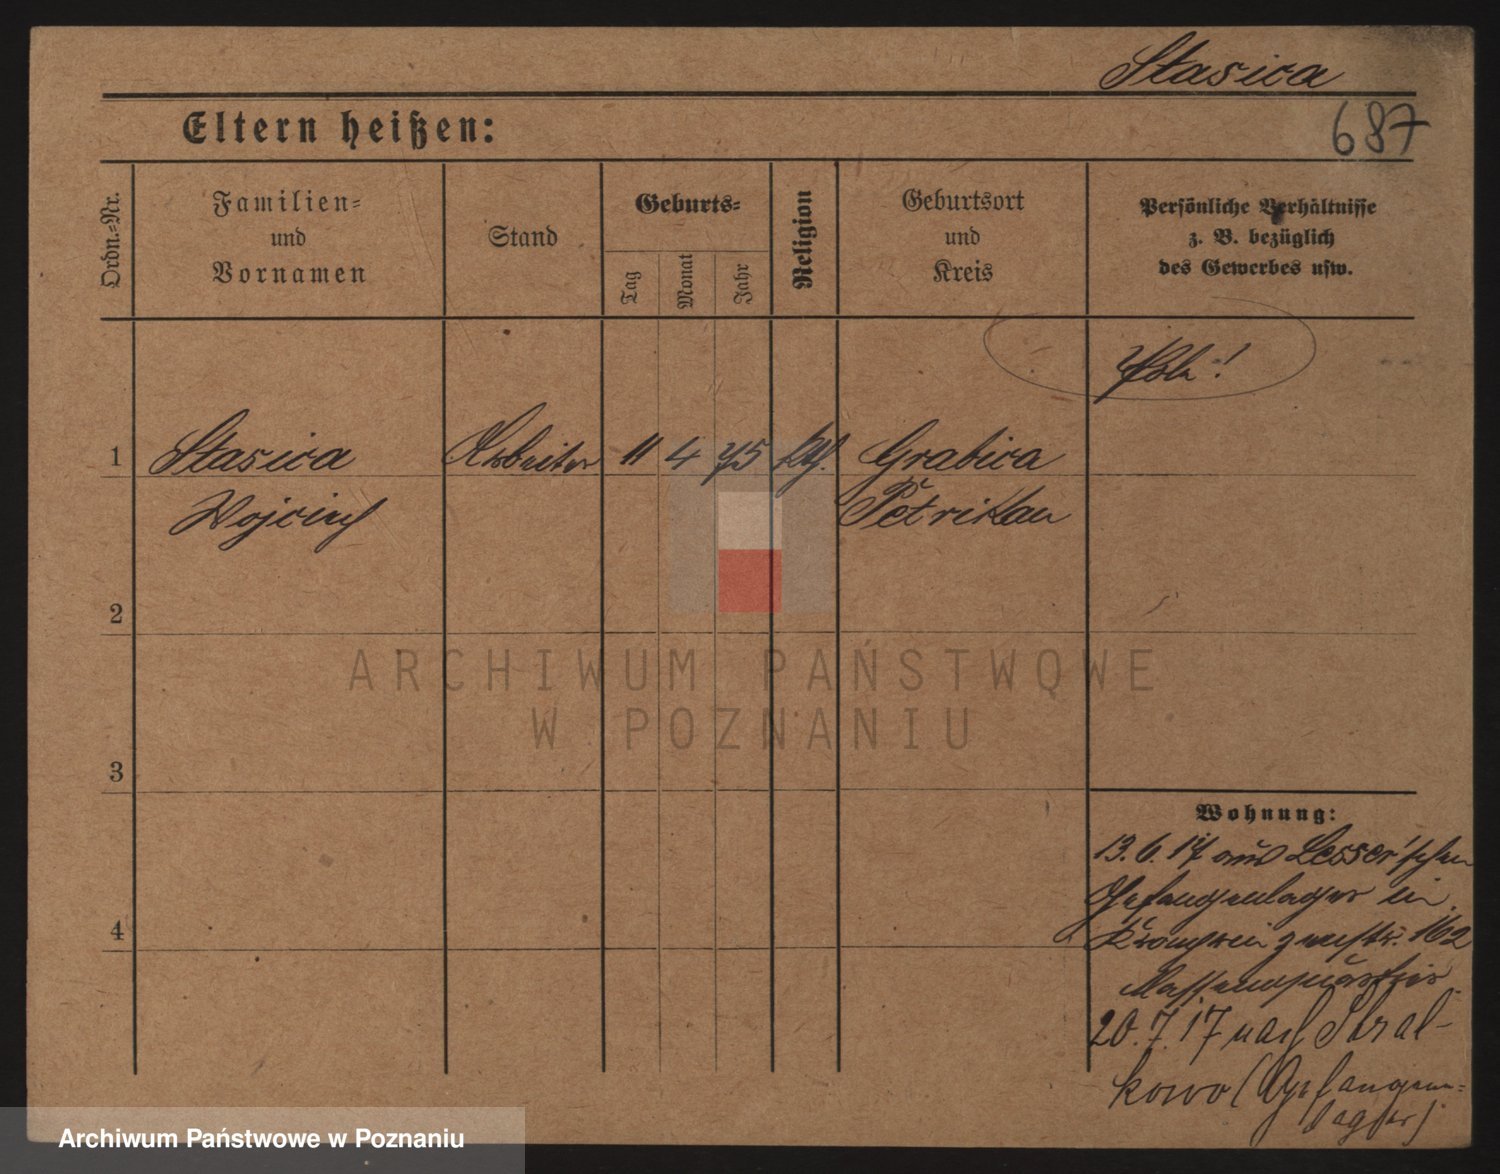 Stasica
687
Eltern heißen:
Ordn.-Nr.
Familien-
und
Vornamen
Stand
Geburts-
Tag
Monat
Jahr
Religion
Geburtsort
und
Kreis
Persönliche Verhältnisse
z. B. bezüglich
des Gewerbes usw.
Pole!
1 Stasica Arbeiter 11 4 75 kth. Grabica
Wojciech Petrikau
2
3
4
Wohnung:
13.6.17 aus Lesser'schen
Gefangenlager in
162
Massenquartier
20.7.17 nach Stral-
kowo (Gefangenen-
lager)
ARCHIWUM PAŃSTWOWE
W POZNANIU
Archiwum Państwowe w Poznaniu